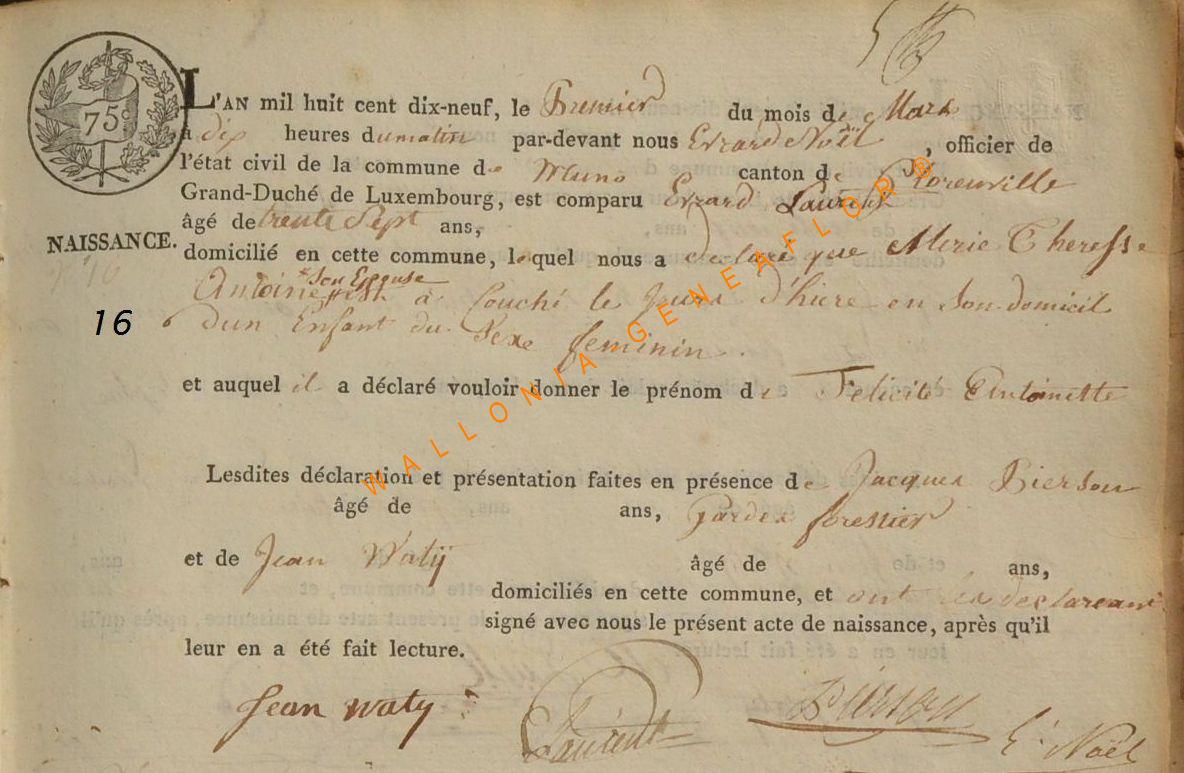 75c
L'AN mil huit cent dix-neuf, le Premier du mois de Mars
à dix heures du matin par-devant nous Evrard Noël, officier de
l'état civil de la commune de Muno canton de Florenville
Grand-Duché de Luxembourg, est comparu Evrard Laurent
âgé de trente Sept ans,
NAISSANCE.
domicilié en cette commune, lequel nous a declaré que Merie Theresse
Antoine son Epouse est à Couché le Jours d'hiere en Son domicil
16
dun Enfant du Sexe feminin.
et auquel il a déclaré vouloir donner le prénom de Felicité Antoinette
Lesdites déclaration et présentation faites en présence de Jacques Pierson
âgé de ans, gardes forestier
et de Jean Watÿ âgé de ans,
domiciliés en cette commune, et ont les declareant
signé avec nous le présent acte de naissance, après qu'il
leur en a été fait lecture.
Jean waty Laurent Pierson E. Noël
WALLONIA GENEAFLORB